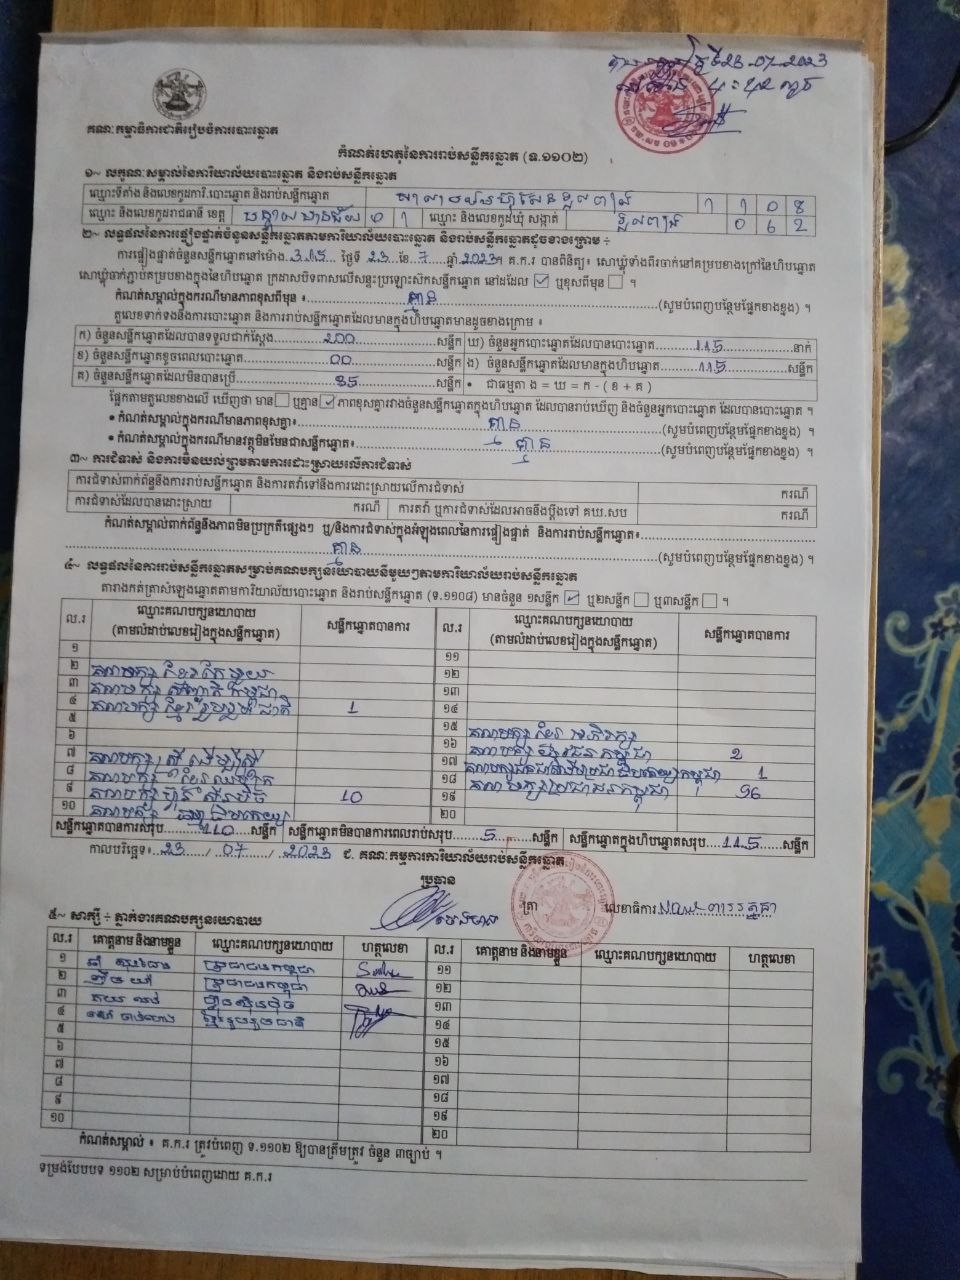 ថ្ងៃទី23-07-2023
គណៈកម្មាធិការជាតិរៀបចំការបោះឆ្នោត
កំណត់ហេតុនៃការរាប់សន្លឹកឆ្នោត (ទ.១១០២)
១~ លក្ខណៈសម្គាល់នៃការិយាល័យបោះឆ្នោត និងរាប់សន្លឹកឆ្នោត
ឈ្មោះទីតាំង និងលេខកូដការិ.បោះឆ្នោត និងរាប់សន្លឹកឆ្នោត 1 1 0 8
ឈ្មោះ និងលេខកូដរាជធានី ខេត្ត បន្ទាយមានជ័យ 0 1 ឈ្មោះ និងលេខកូដឃុំ សង្កាត់ ទួលពង្រ 0 6 2
២~ លទ្ធផលនៃការផ្ទៀងផ្ទាត់ចំនួនសន្លឹកឆ្នោតតាមការិយាល័យបោះឆ្នោត និងរាប់សន្លឹកឆ្នោតដូចខាងក្រោម ÷
ការផ្ទៀងផ្ទាត់ចំនួនសន្លឹកឆ្នោតនៅម៉ោង 3.15 ថ្ងៃទី 23 ខែ 7 ឆ្នាំ 2023 ។ គ.ក.រ បានពិនិត្យ៖ សោឃ្លុំទាំងពីរចាក់នៅគម្របខាងក្រៅនៃហិបឆ្នោត
សោឃ្លុំចាក់ភ្ជាប់គម្របខាងក្នុងនៃហិបឆ្នោត ក្រដាសបិទពាសលើសន្ទះប្រឡោះសិកសន្លឹកឆ្នោត នៅដដែល ☑ ឬខុសពីមុន ☐ ។
កំណត់សម្គាល់ក្នុងករណីមានភាពខុសពីមុន ៖ គ្មាន (សូមបំពេញបន្ថែមផ្នែកខាងខ្នង) ។
តួលេខទាក់ទងនឹងការបោះឆ្នោត និងការរាប់សន្លឹកឆ្នោតដែលមានក្នុងហិបឆ្នោតមានដូចខាងក្រោម ៖
ក) ចំនួនសន្លឹកឆ្នោតដែលបានទទួលជាក់ស្តែង 200 សន្លឹក ឃ) ចំនួនអ្នកបោះឆ្នោតដែលបានបោះឆ្នោត 115 នាក់
ខ) ចំនួនសន្លឹកឆ្នោតខូចពេលបោះឆ្នោត 00 សន្លឹក ង) ចំនួនសន្លឹកឆ្នោតដែលមានក្នុងហិបឆ្នោត 115 សន្លឹក
គ) ចំនួនសន្លឹកឆ្នោតដែលមិនបានប្រើ 85 សន្លឹក • ជាធម្មតា ង = ឃ = ក - ( ខ + គ )
ផ្អែកតាមតួលេខខាងលើ ឃើញថា មាន ☐ ឬគ្មាន ☑ ភាពខុសគ្នារវាងចំនួនសន្លឹកឆ្នោតក្នុងហិបឆ្នោត ដែលបានរាប់ឃើញ និងចំនួនអ្នកបោះឆ្នោត ដែលបានបោះឆ្នោត ។
• កំណត់សម្គាល់ក្នុងករណីមានភាពខុសគ្នា៖ គ្មាន (សូមបំពេញបន្ថែមផ្នែកខាងខ្នង) ។
• កំណត់សម្គាល់ក្នុងករណីមានវត្ថុមិនមែនជាសន្លឹកឆ្នោត៖ គ្មាន (សូមបំពេញបន្ថែមផ្នែកខាងខ្នង) ។
៣~ ការជំទាស់ និងការមិនយល់ព្រមតាមការដោះស្រាយលើការជំទាស់
ការជំទាស់ពាក់ព័ន្ធនឹងការរាប់សន្លឹកឆ្នោត និងការតវ៉ាទៅនឹងការដោះស្រាយលើការជំទាស់ ករណី
ការជំទាស់ដែលបានដោះស្រាយ ករណី ការតវ៉ា ឬការជំទាស់ដែលអាចនឹងប្តឹងទៅ គឃ.សប ករណី
កំណត់សម្គាល់ពាក់ព័ន្ធនឹងភាពមិនប្រក្រតីផ្សេងៗ ឬ/និងការជំទាស់ក្នុងអំឡុងពេលនៃការផ្ទៀងផ្ទាត់ និងការរាប់សន្លឹកឆ្នោត៖
គ្មាន (សូមបំពេញបន្ថែមផ្នែកខាងខ្នង) ។
៤~ លទ្ធផលនៃការរាប់សន្លឹកឆ្នោតសម្រាប់គណបក្សនយោបាយនីមួយៗតាមការិយាល័យរាប់សន្លឹកឆ្នោត
តារាងកត់ត្រាសំឡេងឆ្នោតតាមការិយាល័យបោះឆ្នោត និងរាប់សន្លឹកឆ្នោត (ទ.១១០៨) មានចំនួន ១សន្លឹក ☑ ឬ២សន្លឹក ☐ ឬ៣សន្លឹក ☐ ។
ល.រ ឈ្មោះគណបក្សនយោបាយ (តាមលំដាប់លេខរៀងក្នុងសន្លឹកឆ្នោត) សន្លឹកឆ្នោតបានការ ល.រ ឈ្មោះគណបក្សនយោបាយ (តាមលំដាប់លេខរៀងក្នុងសន្លឹកឆ្នោត) សន្លឹកឆ្នោតបានការ
១ ១១
២ គណបក្ស ខ្មែរតែមួយ ១២
៣ គណបក្ស សញ្ជាតិកម្ពុជា ១៣
៤ គណបក្ស ខ្មែររួបរួមជាតិ 1 ១៤
៥ ១៥ គណបក្ស ខ្មែរអភិរក្ស
៦ ១៦ គណបក្ស កម្ពុជា 2
៧ គណបក្ស ស្រីដើម្បីស្រី ១៧ 1
៨ គណបក្ស ខ្មែរឈប់ក្រ ១៨ គណបក្សប្រជាជនកម្ពុជា 96
៩ គណបក្ស ហ៊្វុនស៊ិនប៉ិច 10 ១៩
១០ គណបក្ស ២០
សន្លឹកឆ្នោតបានការសរុប 110 សន្លឹក សន្លឹកឆ្នោតមិនបានការពេលរាប់សរុប 5 សន្លឹក សន្លឹកឆ្នោតក្នុងហិបឆ្នោតសរុប 115 សន្លឹក
កាលបរិច្ឆេទ៖ 23 / 07 / 2023 ជ. គណៈកម្មការការិយាល័យរាប់សន្លឹកឆ្នោត
ប្រធាន
ត្រា លេខាធិការ
៥~ សាក្សី ÷ ភ្នាក់ងារគណបក្សនយោបាយ
ល.រ គោត្តនាម និងនាមខ្លួន ឈ្មោះគណបក្សនយោបាយ ហត្ថលេខា ល.រ គោត្តនាម និងនាមខ្លួន ឈ្មោះគណបក្សនយោបាយ ហត្ថលេខា
១ ប្រជាជនកម្ពុជា ១១
២ ប្រជាជនកម្ពុជា ១២
៣ ហ៊្វុនស៊ិនប៉ិច ១៣
៤ ខ្មែររួបរួមជាតិ ១៤
៥ ១៥
៦ ១៦
៧ ១៧
៨ ១៨
៩ ១៩
១០ ២០
កំណត់សម្គាល់ ៖ គ.ក.រ ត្រូវបំពេញ ទ.១១០២ ឱ្យបានត្រឹមត្រូវ ចំនួន ៣ច្បាប់ ។
ទម្រង់បែបបទ ១១០២ សម្រាប់បំពេញដោយ គ.ក.រ